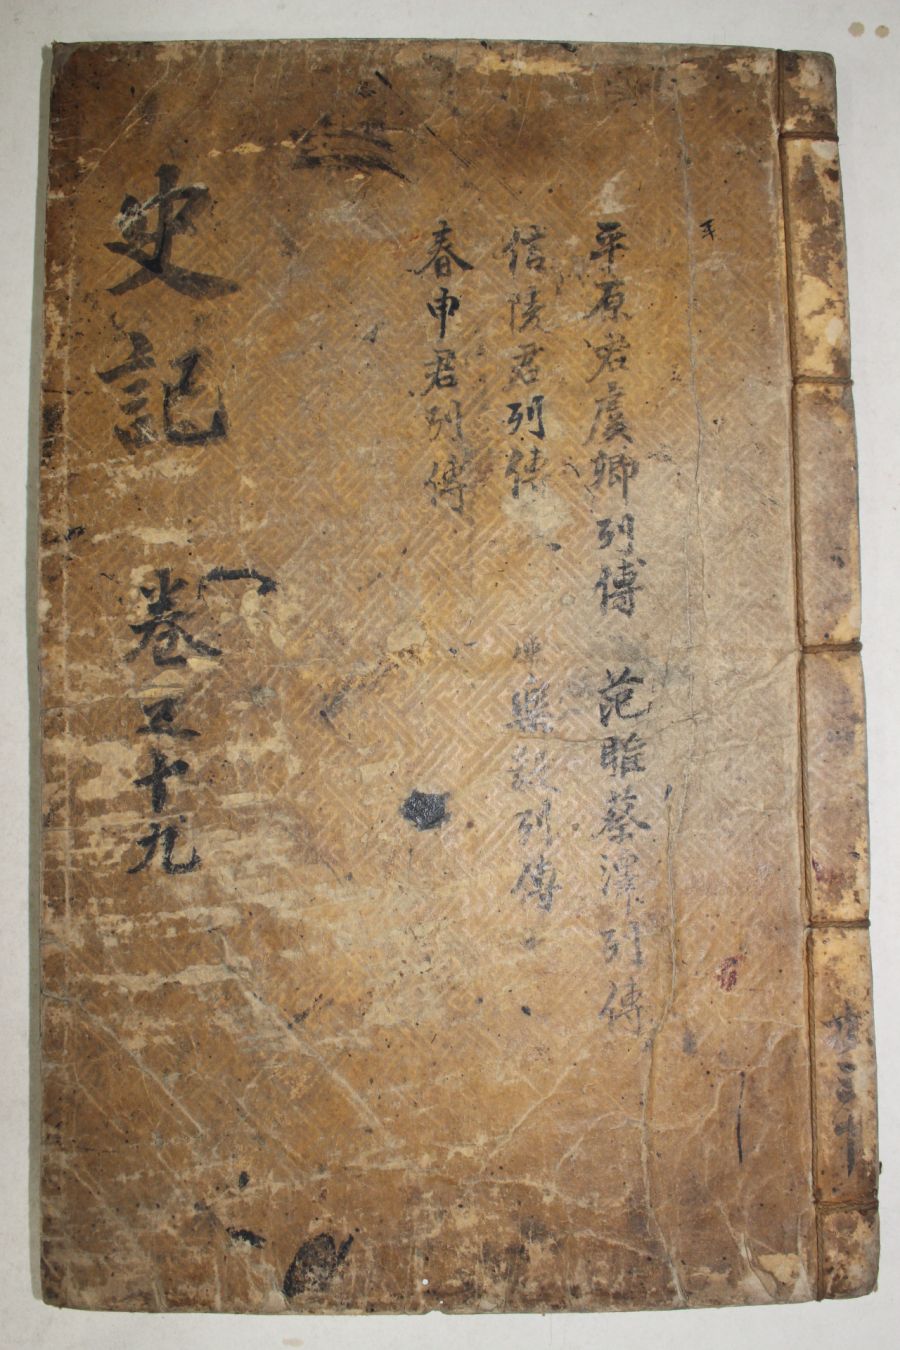 平
平原君虞卿列傳 范睢蔡澤列傳
信陵君列傳 樂毅列傳
春申君列傳
史記 卷五十九
共三十